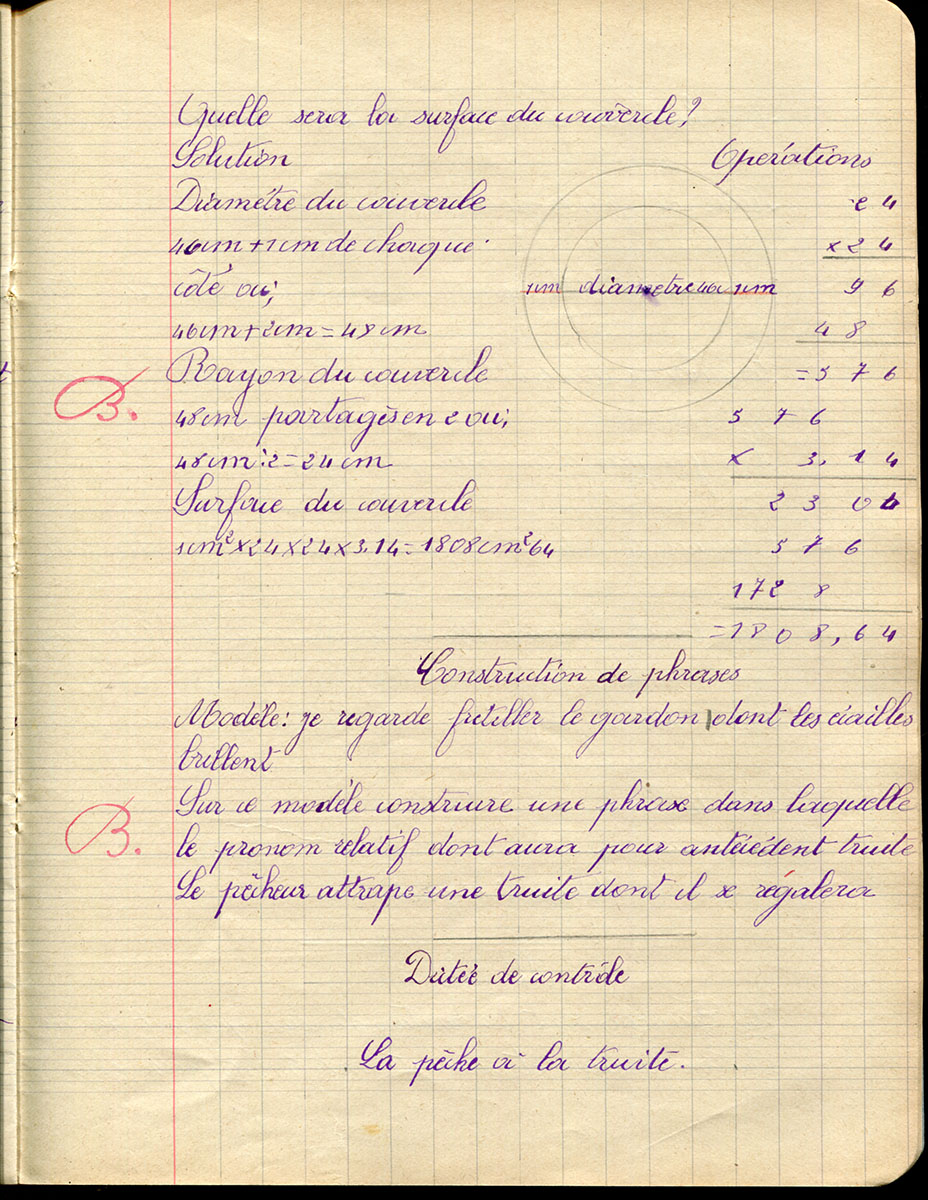 Quelle sera la surface du couvercle?
Solution Opérations
Diamètre du couvercle 24
46cm+1cm de chaque ×24
côté ou; 1cm diametre 46c 1cm 96
46cm+2cm=48cm 48
Rayon du couvercle =576
48cm partagés en 2 ou; 576
48cm:2=24cm × 3.14
Surface du couvercle 2304
1cm²×24×24×3.14=1808cm²64 576
1728
=1808,64
B.
Construction de phrases
Modèle: je regarde frétiller le gardon dont les écailles
brillent
Sur ce modèle construire une phrase dans laquelle
le pronom relatif dont aura pour antécédent truite
B.
Le pêcheur attrape une truite dont il se régalera
Dictée de contrôle
La pêche à la truite.